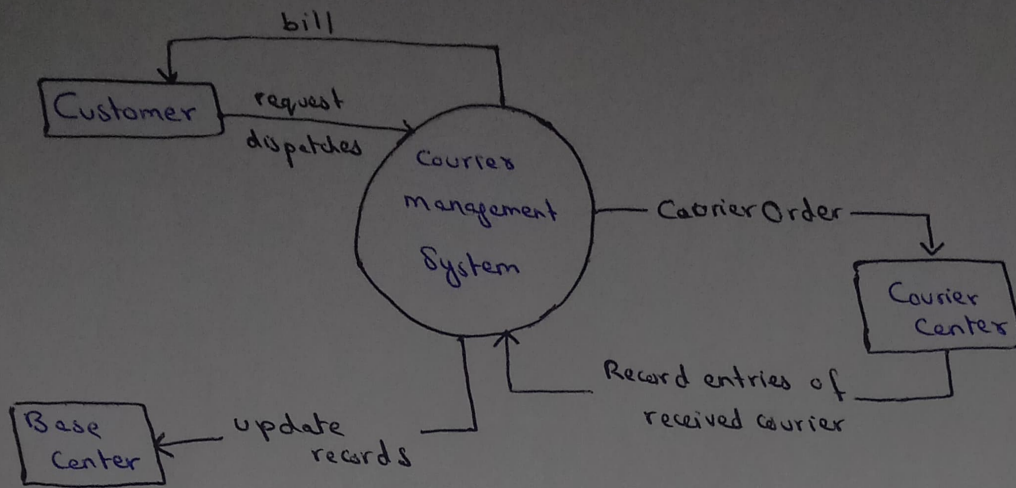 bill
Customer
request
dispatches
Courier
management
System
Courier Order
Courier
Center
Record entries of
received courier
update
records
Base
Center